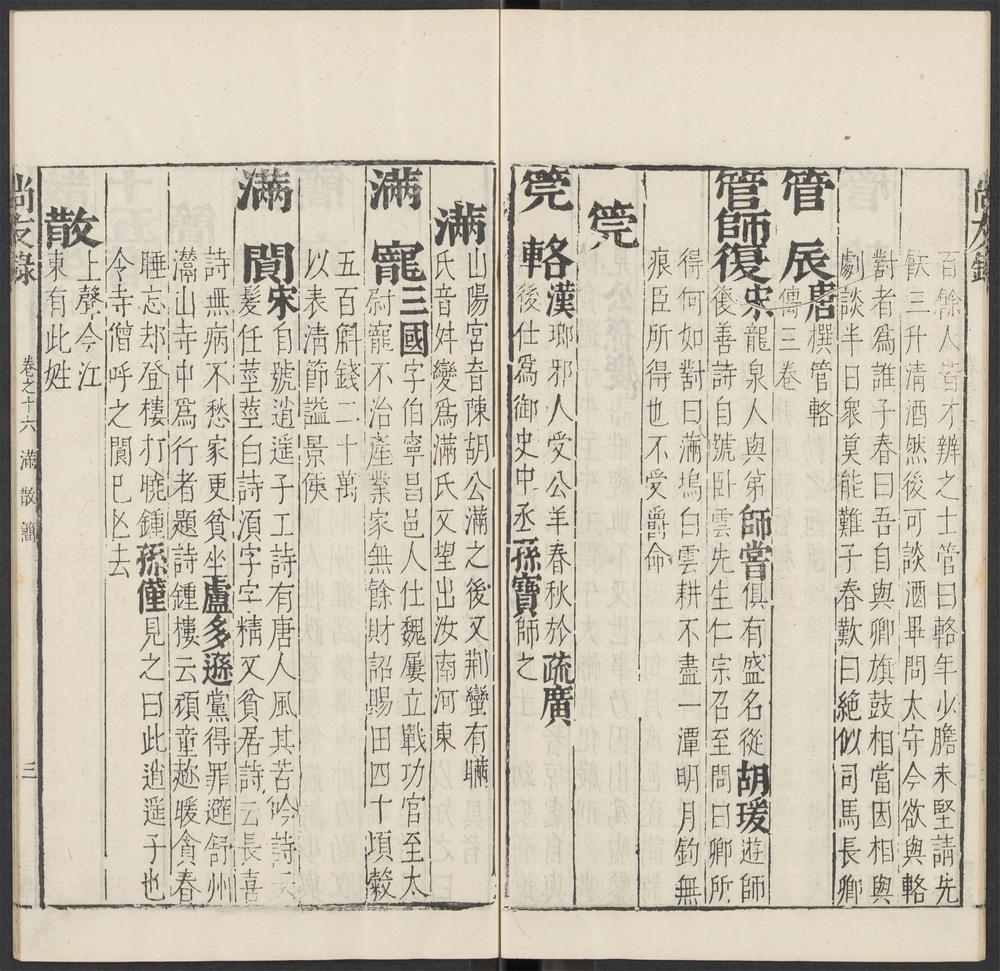 尚友錄
百餘人皆才辨之士管曰輅年少膽未堅請先
飲三升清酒然後可談酒畢問太守今欲與輅
對者爲誰子春曰吾自與卿旗鼓相當因相與
劇談半日衆莫能難子春歎曰絶似司馬長卿
管辰唐撰管輅
傳三卷
管師復宋龍泉人與弟師當俱有盛名從胡瑗遊師
復善詩自號臥雲先生仁宗召至問曰卿所
得何如對曰滿塢白雲耕不盡一潭明月釣無
痕臣所得也不受爵命
筦
筦輅漢瑯邪人受公羊春秋於疏廣
後仕爲御史中丞孫寶師之
滿山陽宮音陳胡公滿之後又荆蠻有瞞
氏音舛變爲滿氏又望出汝南河東
滿寵三國字伯寧昌邑人仕魏屢立戰功官至太
尉寵不治產業家無餘財詔賜田四十頃穀
五百斛錢二十萬
以表清節謚景侯
滿閴宋自號逍遥子工詩有唐人風其苦吟詩云
髮任莖莖白詩湏字字精又貧居詩云長喜
詩無病不愁家更貧坐盧多遜黨得罪避舒州
灊山寺中爲行者題詩鍾樓云頑童趂暖貪春
睡忘却登樓打曉鍾孫僅見之曰此逍遥子也
令寺僧呼之閴已亾去
散上聲今江
東有此姓
尚友錄 卷之十六 滿 散 簡 三